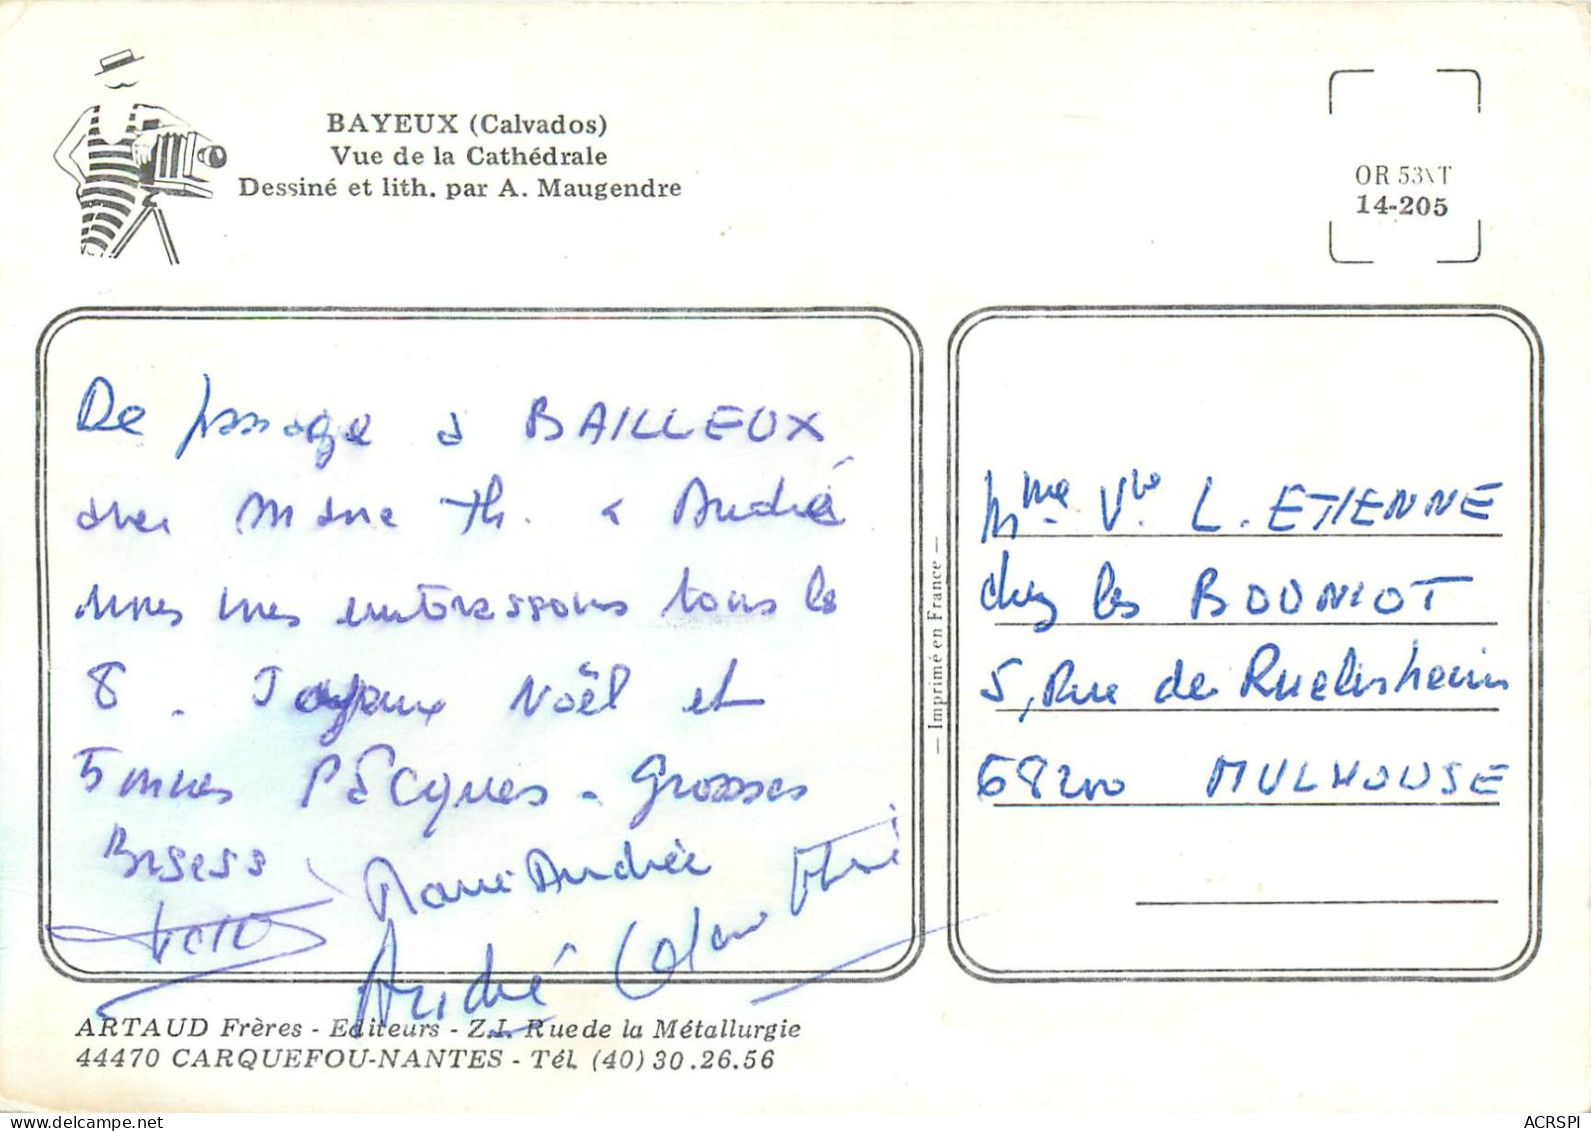 BAYEUX (Calvados)
Vue de la Cathédrale
Dessiné et lith. par A. Maugendre
OR 53\T
14-205
De passage à BAILLEUX
avec Marie Th. & André
nous vous embrassons tous les
8 - Joyeux Noël et
Bonnes PâCques - Grosses
Bisess
Marie-Andrée
André
— Imprimé en France —
Mme Vve L. ETIENNE
chez les BOUNIOT
5, Rue de Ruelisheim
68200 MULHOUSE
ARTAUD Frères - Editeurs - Z.I. Rue de la Métallurgie
44470 CARQUEFOU-NANTES - Tél. (40) 30.26.56
ACRSPI